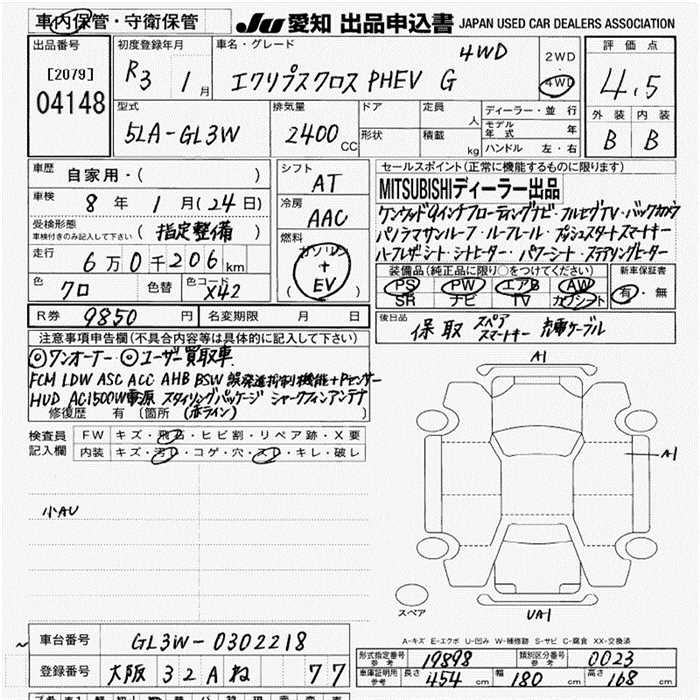 車内保管・守衛保管 JU 愛知 出品申込書 JAPAN USED CAR DEALERS ASSOCIATION
出品番号 初度登録年月 車名・グレード 4WD 2WD・4WD 評価点
[2079] 04148 R3 1月 エクリプスクロス PHEV G 4.5
型式 排気量 ドア 定員 人 ディーラー・並行 外装 内装
5LA-GL3W 2400 CC 形状 積載 kg モデル年式 年 ハンドル 左・右 B B
車歴 自家用・( ) シフト AT セールスポイント(正常に機能するものに限ります)
車検 8年 1月(24日) 冷房 AAC MITSUBISHIディーラー出品
受検形態 車検付きのみ記入して下さい (指定整備) 燃料 ガソリン+EV ( )
ケンウッド9インチフローティングナビ・フルセグTV・バックカメラ
パノラマサンルーフ・ルーフレール・プッシュスタートスマートキー
ハーフレザーシート・シートヒーター・パワーシート・ステアリングヒーター
走行 6万0千206km
装備品(純正品に限り○をつけてください) 新車保証書
PS PW エアB AW 有・無
SR ナビ TV カワシート
色 クロ 色替 色コード X42
R券 9850円 名変期限 月 日
後日品 保 取 スペアスマートキー 充電ケーブル
注意事項申告欄(不具合内容等は具体的に記入して下さい)
◎ワンオーナー ◎ユーザー買取車
FCM LDW ASC ACC AHB BSW 誤発進抑制機能+Pセンサー
HUD AC1500W電源 スタイリングパッケージ シャークフィンアンテナ
修復歴 有 (箇所 (赤ライン) )
検査員記入欄 FW キズ・飛石・ヒビ割・リペア跡・X要
内装 キズ・汚レ・コゲ・穴・スレ・キレ・破レ
小AU
A1
A1
スペア
UA1
A-キズ E-エクボ U-凹み W-補修跡 S-サビ C-腐食 XX-交換済
車台番号 GL3W-0302218
形式指定番号 参考 19898 類別区分番号 参考 0023
登録番号 大阪 32A ね 77
車庫証明用 参考 長さ 454cm 幅 180cm 高さ 168cm